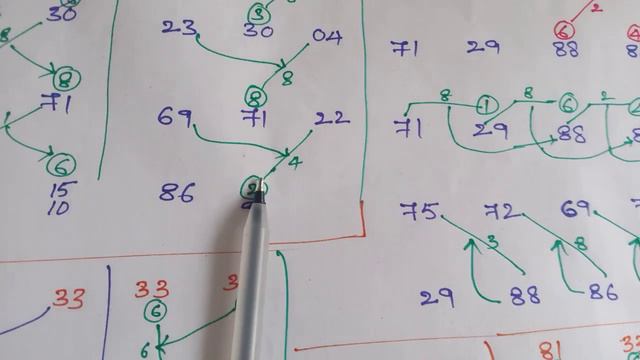 30
8
8
71
6
15
10
3
23 30 04
8
8
69 71 22
4
86 2
2
6
71 29 88
8 1 8 6 2
71 29 88
75 72 69
3 8
29 88 86
33 33
6
6
81